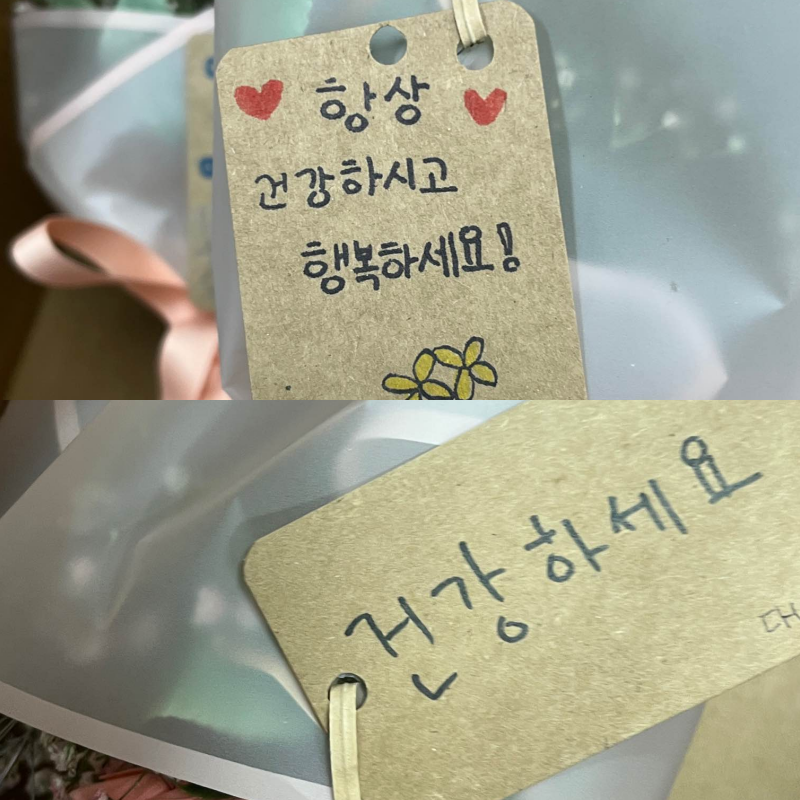 항상
건강하시고
행복하세요!
건강하세요